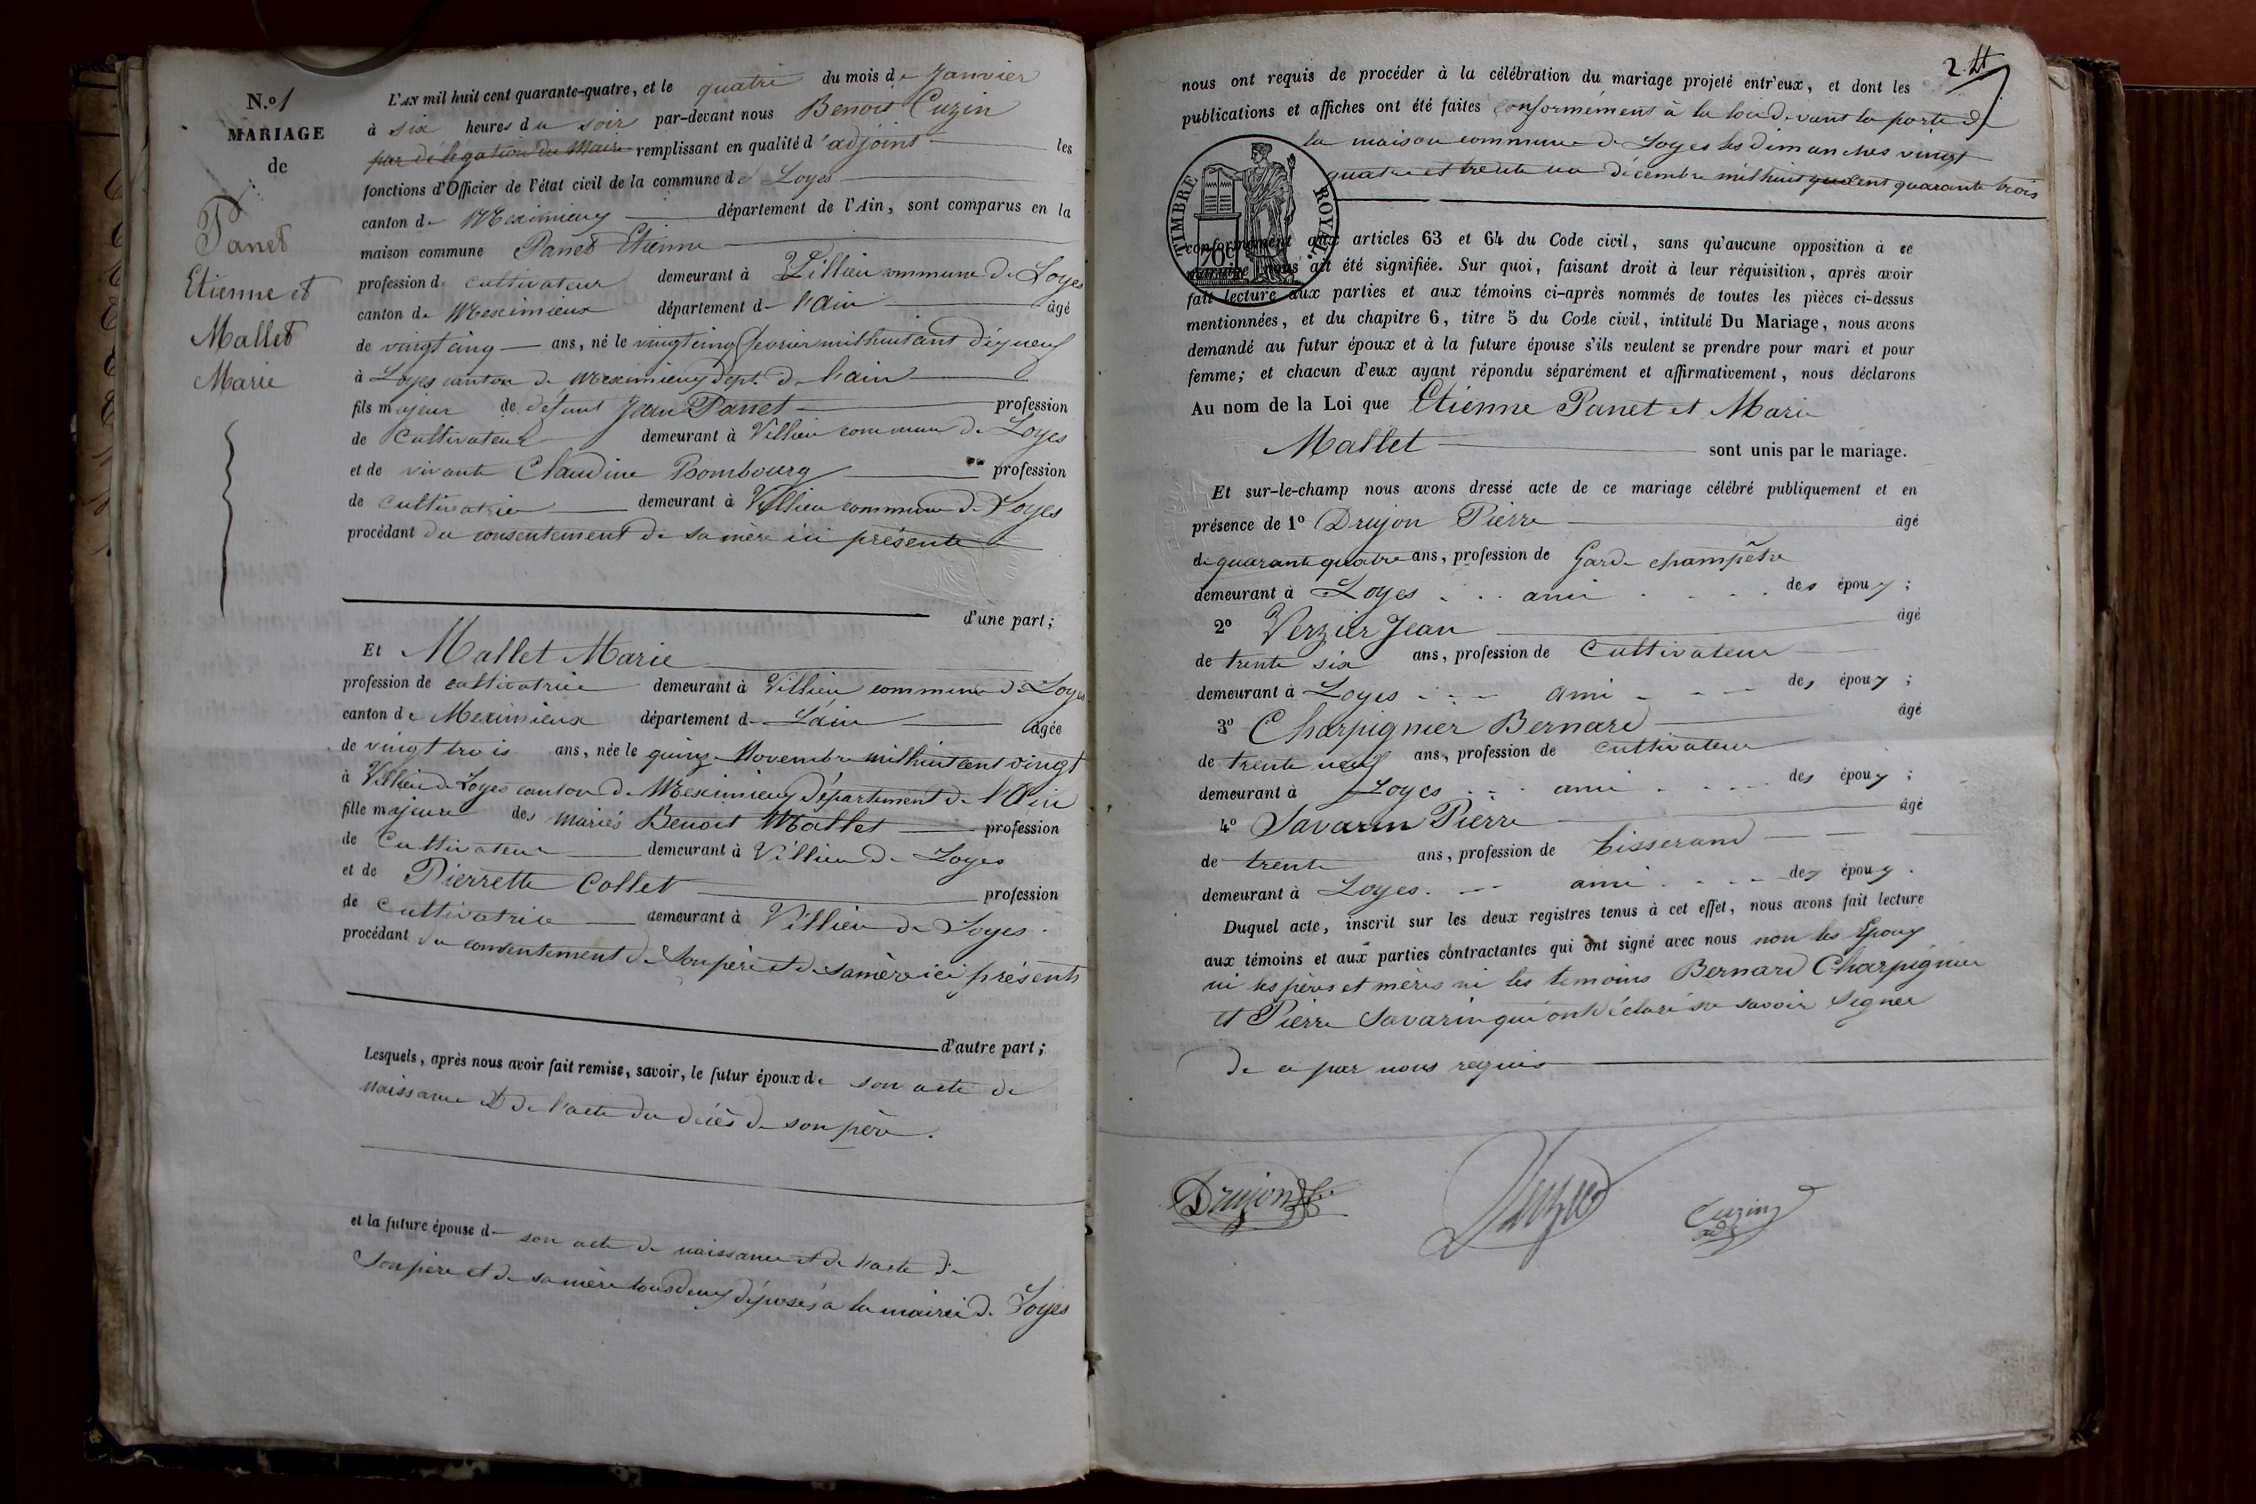 N.º 1
MARIAGE
de
Panet
Etienne et
Mallet
Marie
L'AN mil huit cent quarante-quatre, et le quatre du mois de Janvier
à six heures du soir par-devant nous Benoit Cuzin
par délégation du Maire remplissant en qualité d'adjoint les
fonctions d'Officier de l'état civil de la commune de Loyes
canton de Meximieux département de l'Ain, sont comparus en la
maison commune Panet Etienne
profession de cultivateur demeurant à Villieu commune de Loyes
canton de Meximieux département de l'ain âgé
de vingt cinq ans, né le vingt cinq fevrier mil huit cent dix neuf
à Loyes canton de Meximieux dept. de l'ain
fils majeur de defunt Jean Panet profession
de cultivateur demeurant à Villieu commune de Loyes
et de vivante Claudine Bombourg profession
de cultivatrice demeurant à Villieu commune de Loyes
procédant du consentement de sa mère ici présente
d'une part;
Et Mallet Marie
profession de cultivatrice demeurant à Villieu commune de Loyes
canton de Meximieux département de L'ain âgée
de vingt trois ans, née le quinze Novembre mil huit cent vingt
à Villieu de Loyes canton de Meximieux département de l'Ain
fille majeure des mariés Benoit Mallet profession
de Cultivateur demeurant à Villieu de Loyes
et de Pierrette Collet profession
de cultivatrice demeurant à Villieu de Loyes.
procédant du consentement de son père et de sa mère ici présents
d'autre part;
Lesquels, après nous avoir fait remise, savoir, le futur époux de son acte de
naissance et de l'acte du décès de son père.
et la future épouse de son acte de naissance et de l'acte de
son père et de sa mère tous deux déposés à la mairie de Loyes
2
nous ont requis de procéder à la célébration du mariage projeté entr'eux, et dont les
publications et affiches ont été faites conformément à la loi devant la porte de
la maison commune de Loyes les dimanches vingt
quatre et trente un décembre mil huit cent quarante trois
TIMBRE ROYAL
70c
conformément aux articles 63 et 64 du Code civil, sans qu'aucune opposition à ce
mariage nous ait été signifiée. Sur quoi, faisant droit à leur réquisition, après avoir
fait lecture aux parties et aux témoins ci-après nommés de toutes les pièces ci-dessus
mentionnées, et du chapitre 6, titre 5 du Code civil, intitulé Du Mariage, nous avons
demandé au futur époux et à la future épouse s'ils veulent se prendre pour mari et pour
femme; et chacun d'eux ayant répondu séparément et affirmativement, nous déclarons
Au nom de la Loi que Etienne Panet et Marie
Mallet sont unis par le mariage.
Et sur-le-champ nous avons dressé acte de ce mariage célébré publiquement et en
présence de 1º Drujon Pierre âgé
de quarante quatre ans, profession de Garde champêtre
demeurant à Loyes ami des époux;
2º Verzier Jean âgé
de trente six ans, profession de Cultivateur
demeurant à Loyes ami des époux;
3º Charpignier Bernard âgé
de trente neuf ans, profession de cultivateur
demeurant à Loyes ami des époux;
4º Savarin Pierre âgé
de trente ans, profession de tisserand
demeurant à Loyes. ami des époux.
Duquel acte, inscrit sur les deux registres tenus à cet effet, nous avons fait lecture
aux témoins et aux parties contractantes qui ont signé avec nous non les Epoux
ni les pères et mères ni les temoins Bernard Charpignier
et Pierre Savarin qui ont déclaré ne savoir signer
de ce par nous requis
Drujon
Cuzin
adj